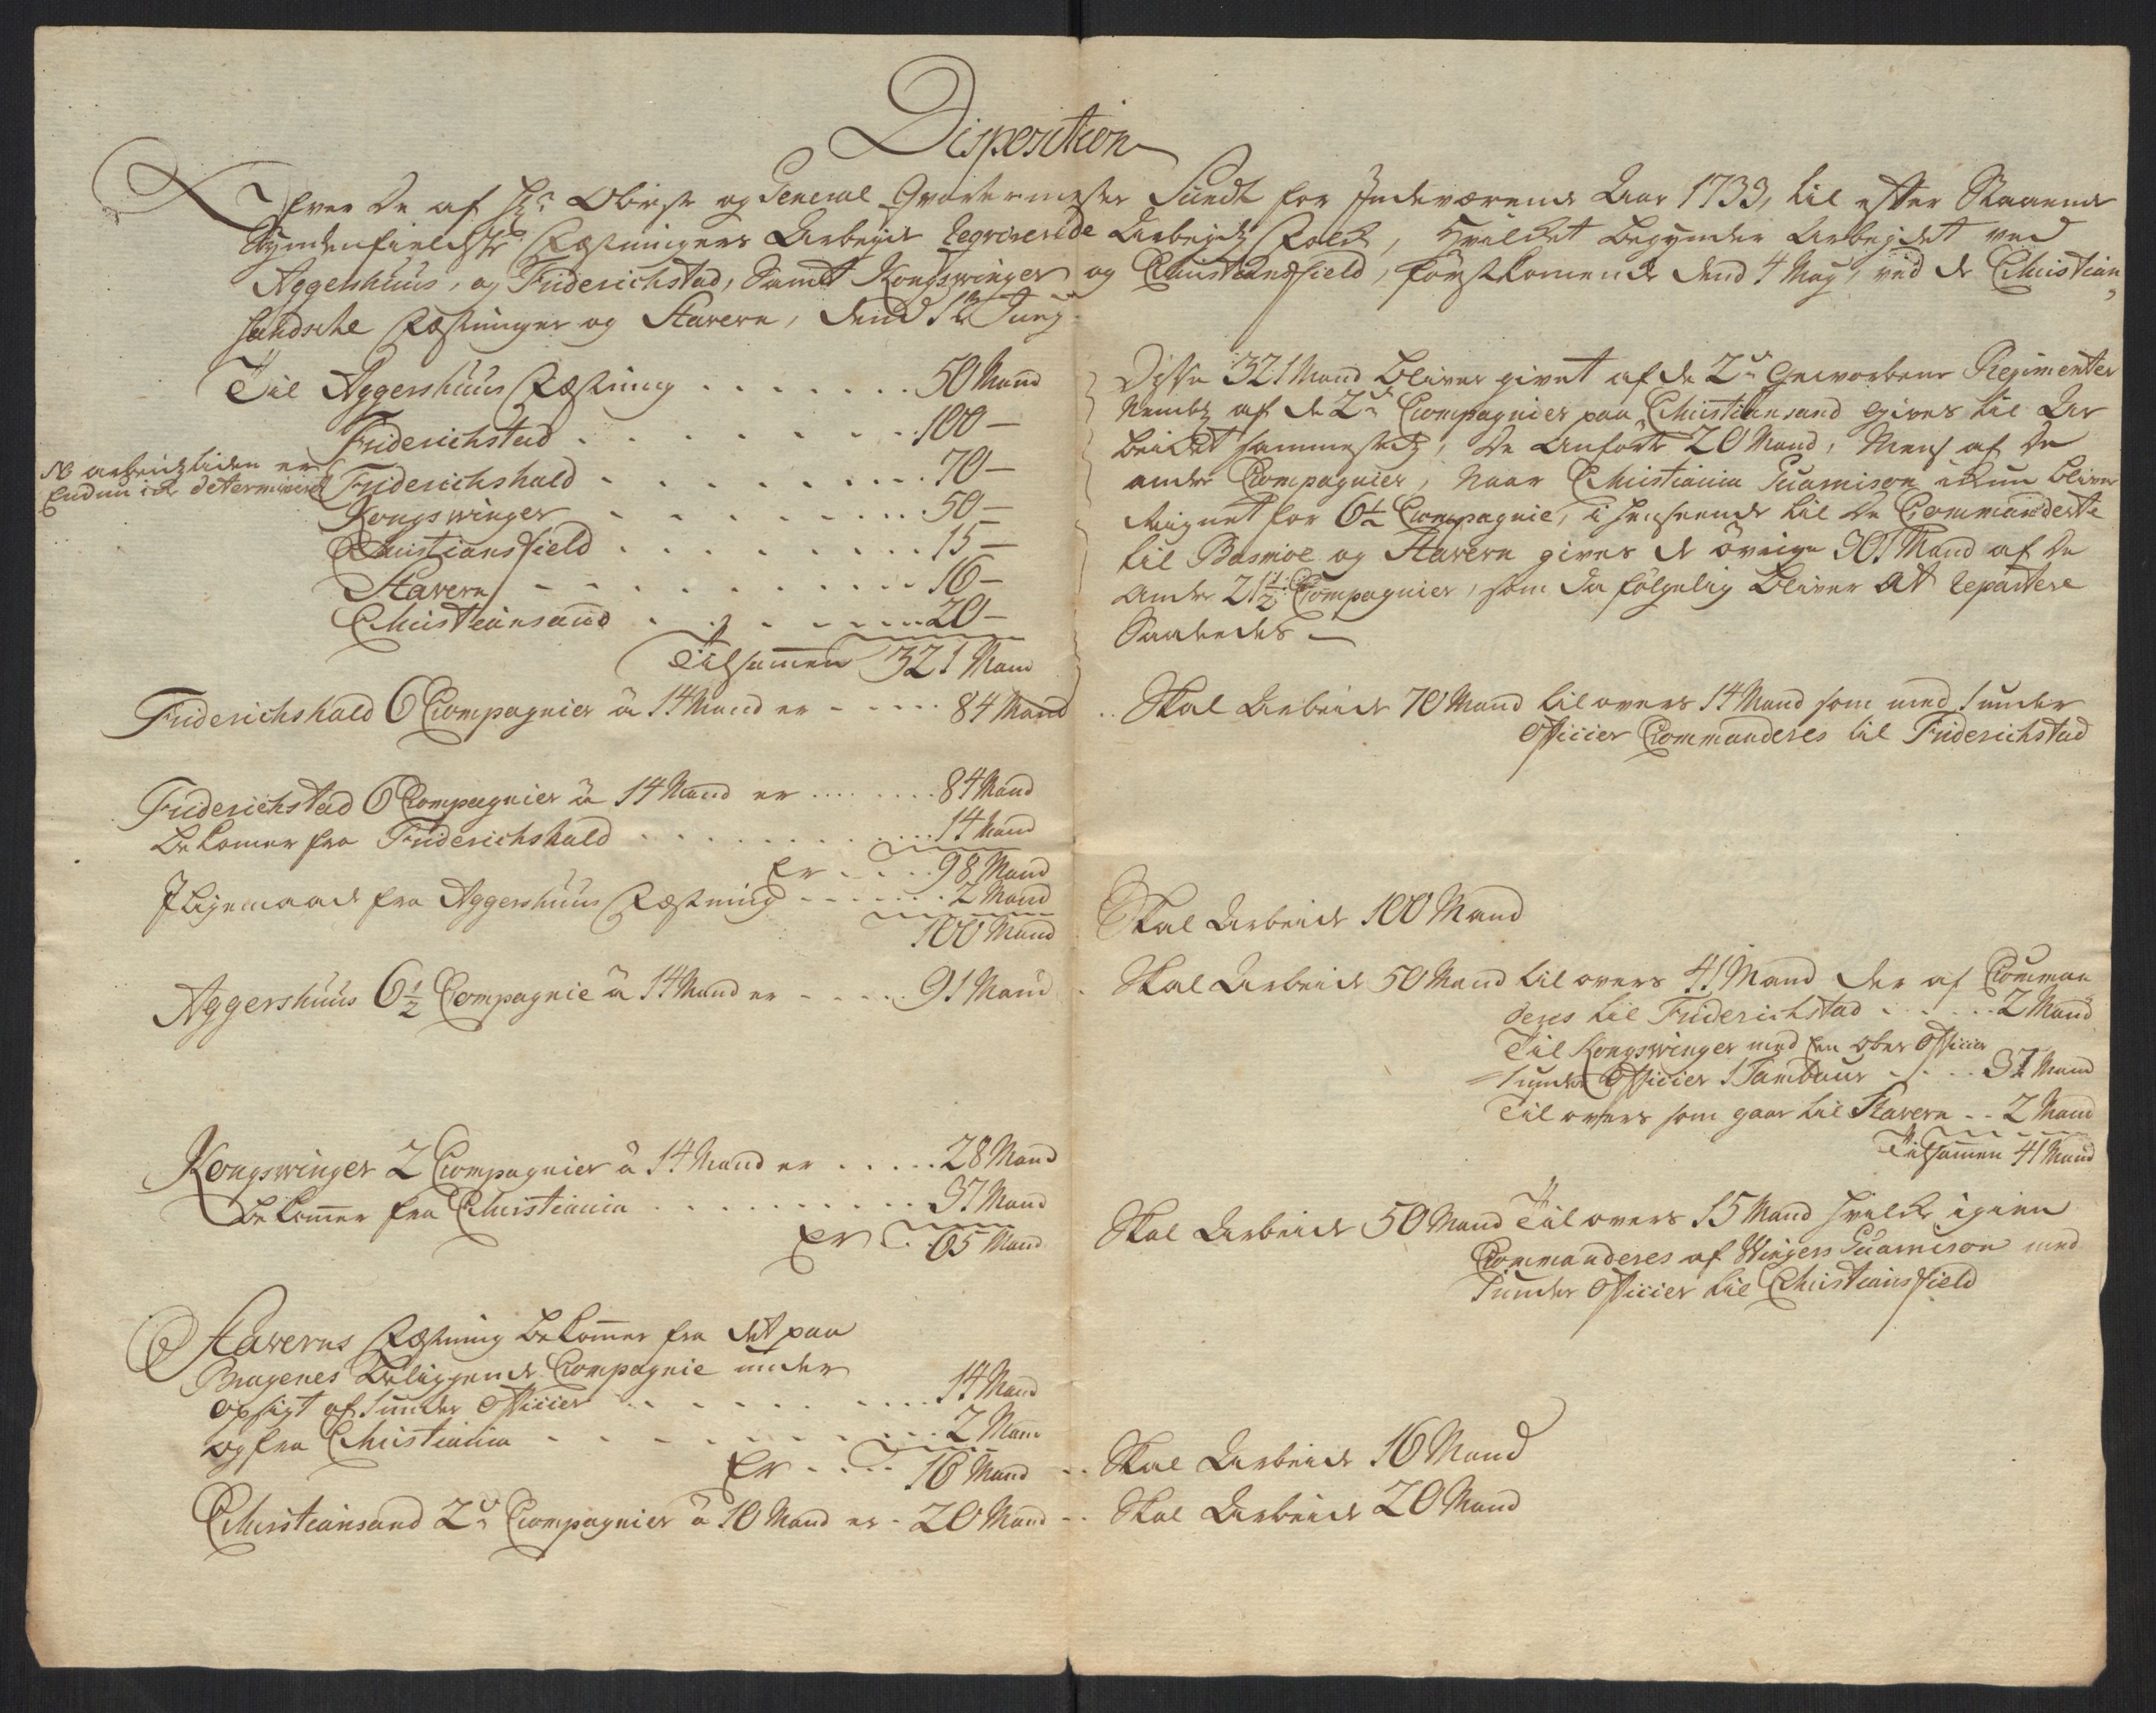 Disposition
Over de af Hr. Obriste og General Qvartermester Sundt for Indeværende Aar 1733, til efter Staaende
Syndenfieldske Fæstningers Arbeyde Reqvirerede Arbejdz Folck, Hvilcket begynder Arbejdet ved
Aggershuus, og Friderichstad, Samt Kongswinger og Christiansfield, förstkomende dend 4 Maÿ, ved de Christian„
sandsche Fæstninger og Stavern, dend 1te Junÿ
Til Aggershuus Fæstning . . . . . . . 50 Mand
Friderichstad . . . . . . . . 100 —
NB arbeidztiden er
Friderichshald . . . . . . . . 70 —
Endnu icke determineret
Kongswinger . . . . . . . . 50 —
Christiansfield . . . . . . . . 15 —
Stavern . . . . . . . . 16 —
Christiansand . . . . . . . . 20 —
Tilsamen 321 Mand
Disse 321 Mand bliver givet af de 2de Gevorbene Regimenter
Nemlig af de 2de Compagnier paa Christiansand gives til Ar
beidet sammestedz, de Anförte 20 Mand, Mens af de
andre Compagnier, Naar Christiania Guarnison ickun bliver
Reignet for 6½ Compagnie, i henseende til de Commanderte
til Basmoe og Stavern gives de övrige 301 Mand af de
andre 21½ Compagnier, som da fölgelig bliver at repartere
Saaledes —
Friderichshald 6 Compagnier â 14 Mand er - - - - - 84 Mand
Skal Arbeide 70 Mand til overs 14 Mand som med 1 under
Officier Commanderes til Friderichstad
Friderichstad 6 Compagnier â 14 Mand er . . . . . . . . 84 Mand
Bekomer fra Friderichshald . . . . . . . . 14 Mand
Er . . . . 98 Mand
I ligemaade fra Aggershuus Fæstning - - - - - - 2 Mand
100 Mand
Skal Arbeide 100 Mand
Aggershuus 6½ Compagnie â 14 Mand er - - - - . 91 Mand
Skal Arbeide 50 Mand til overs 41 Mand der af Comman
deres til Friderichstad . . . . . . 2 Mand
Til Kongswinger med En Ober Officier
1 under Officier 1 Tambour . . . . 37 Mand
Til overs som gaar til Stavern . . 2 Mand
Tilsamen 41 Mand
Kongswinger 2 Compagnier â 14 Mand er . . . . . 28 Mand
Bekomer fra Christiania . . . . . . . . . . 37 Mand
Er . . 65 Mand
Skal Arbeide 50 Mand Til overs 15 Mand hvilcke igien
Commanderes af Wingers Guarnison med
1 under Officier til Christiansfield
Staverns Fæstning bekomer fra det paa
Bragenes Beliggende Compagnie under
opsigt af 1 under Officier . . . . . . . . 14 Mand
og fra Christiania - - - - - - - . . . 2 Mand
Er - . . . 16 Mand
Skal Arbeide 16 Mand
Christiansand 2de Compagnier â 10 Mand er - 20 Mand - .
Skal Arbeide 20 Mand